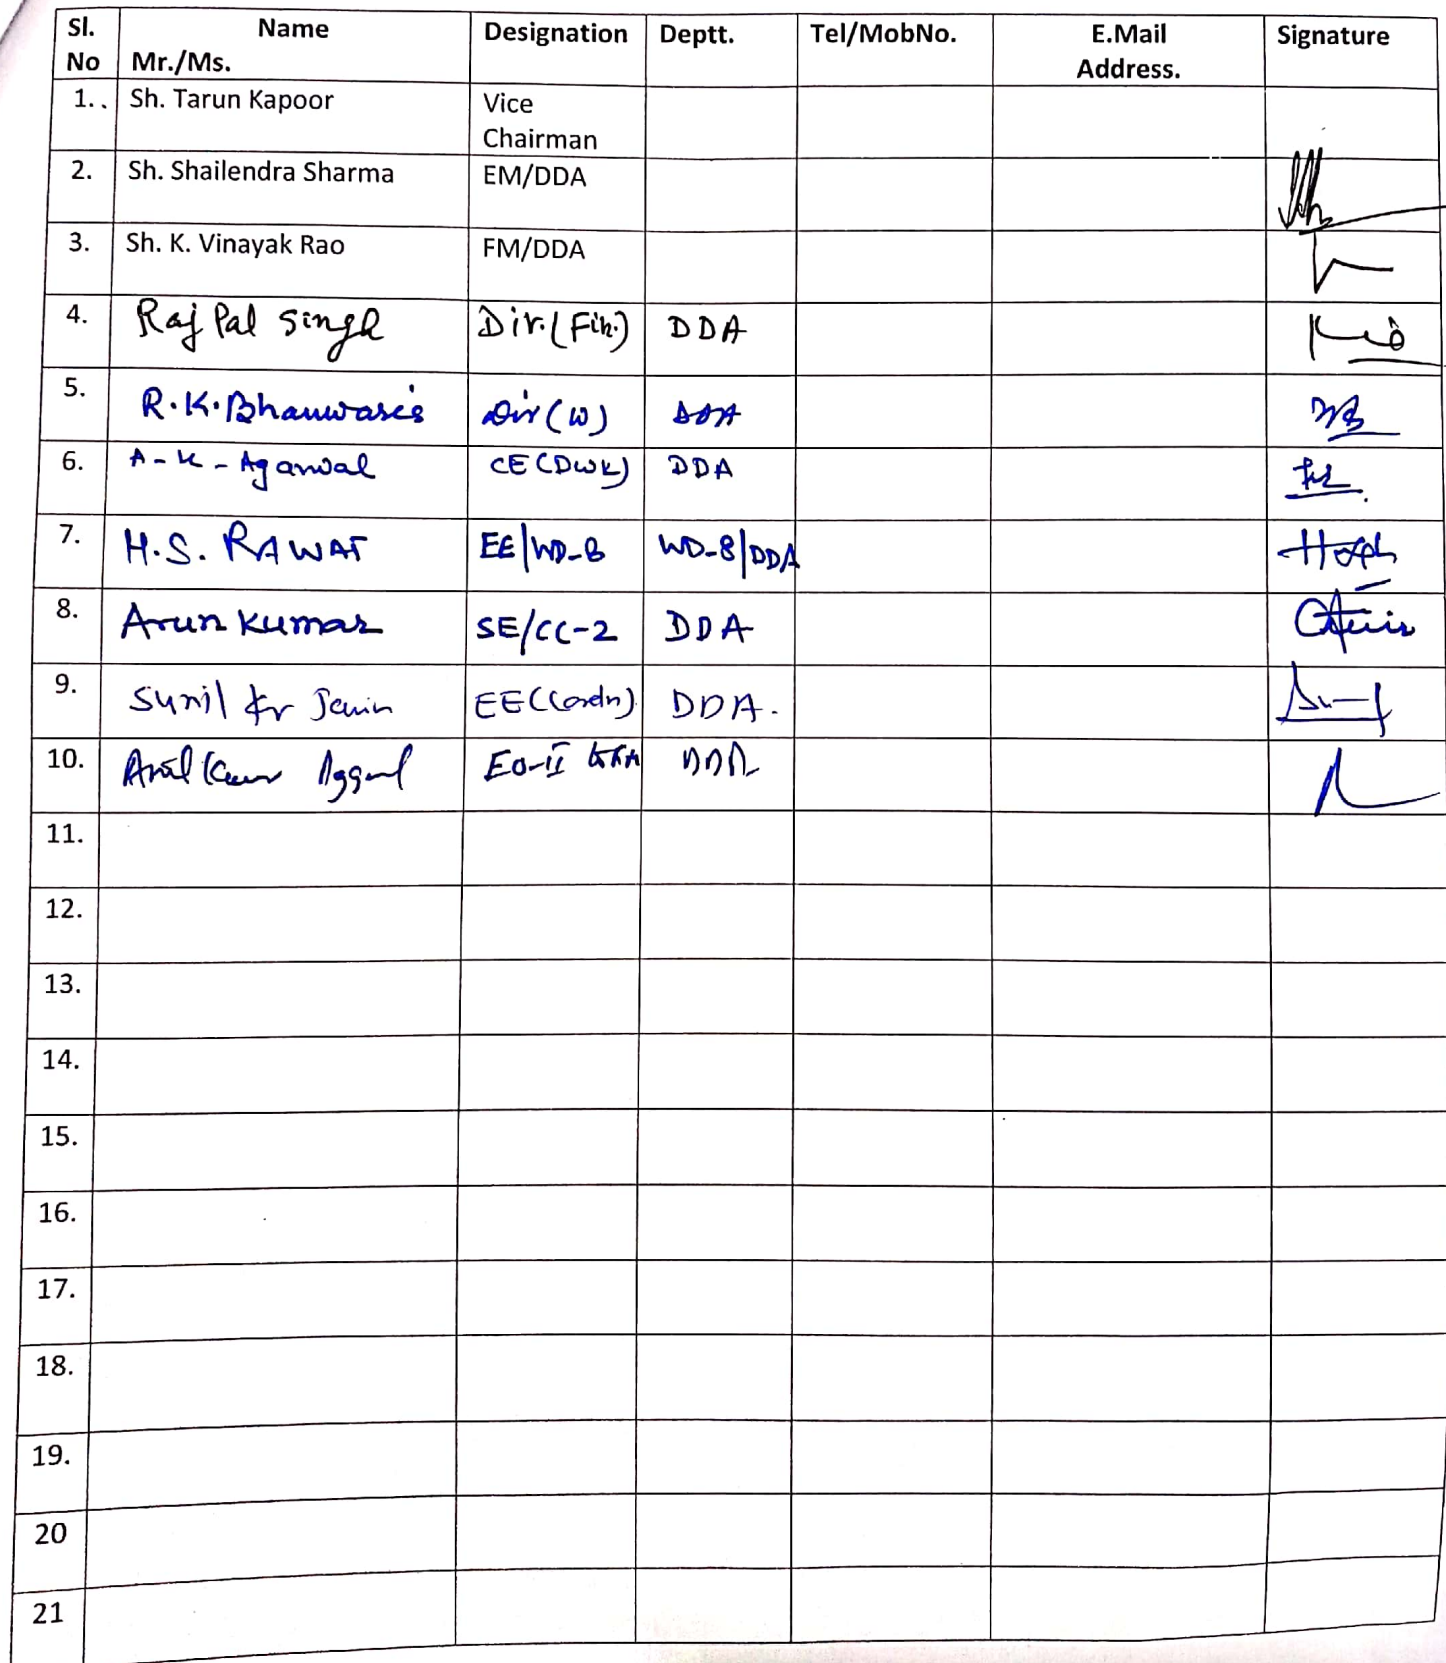 Sl. No Name Mr./Ms. Designation Deptt. Tel/MobNo. E.Mail Address. Signature
1.. Sh. Tarun Kapoor Vice Chairman
2. Sh. Shailendra Sharma EM/DDA
3. Sh. K. Vinayak Rao FM/DDA
4. Raj Pal Singh Dir.(Fin.) DDA
5. R.K. Dir(W) DDA
6. A-K-Agarwal CE(DWK) DDA
7. H.S. RAWAT EE/WD-8 WD-8/DDA
8. Arun Kumar SE/CC-2 DDA
9. Sunil Kr Jain EE(Cordn) DDA.
10. Anil Aggarwal EO-II DDA
11.
12.
13.
14.
15.
16.
17.
18.
19.
20
21